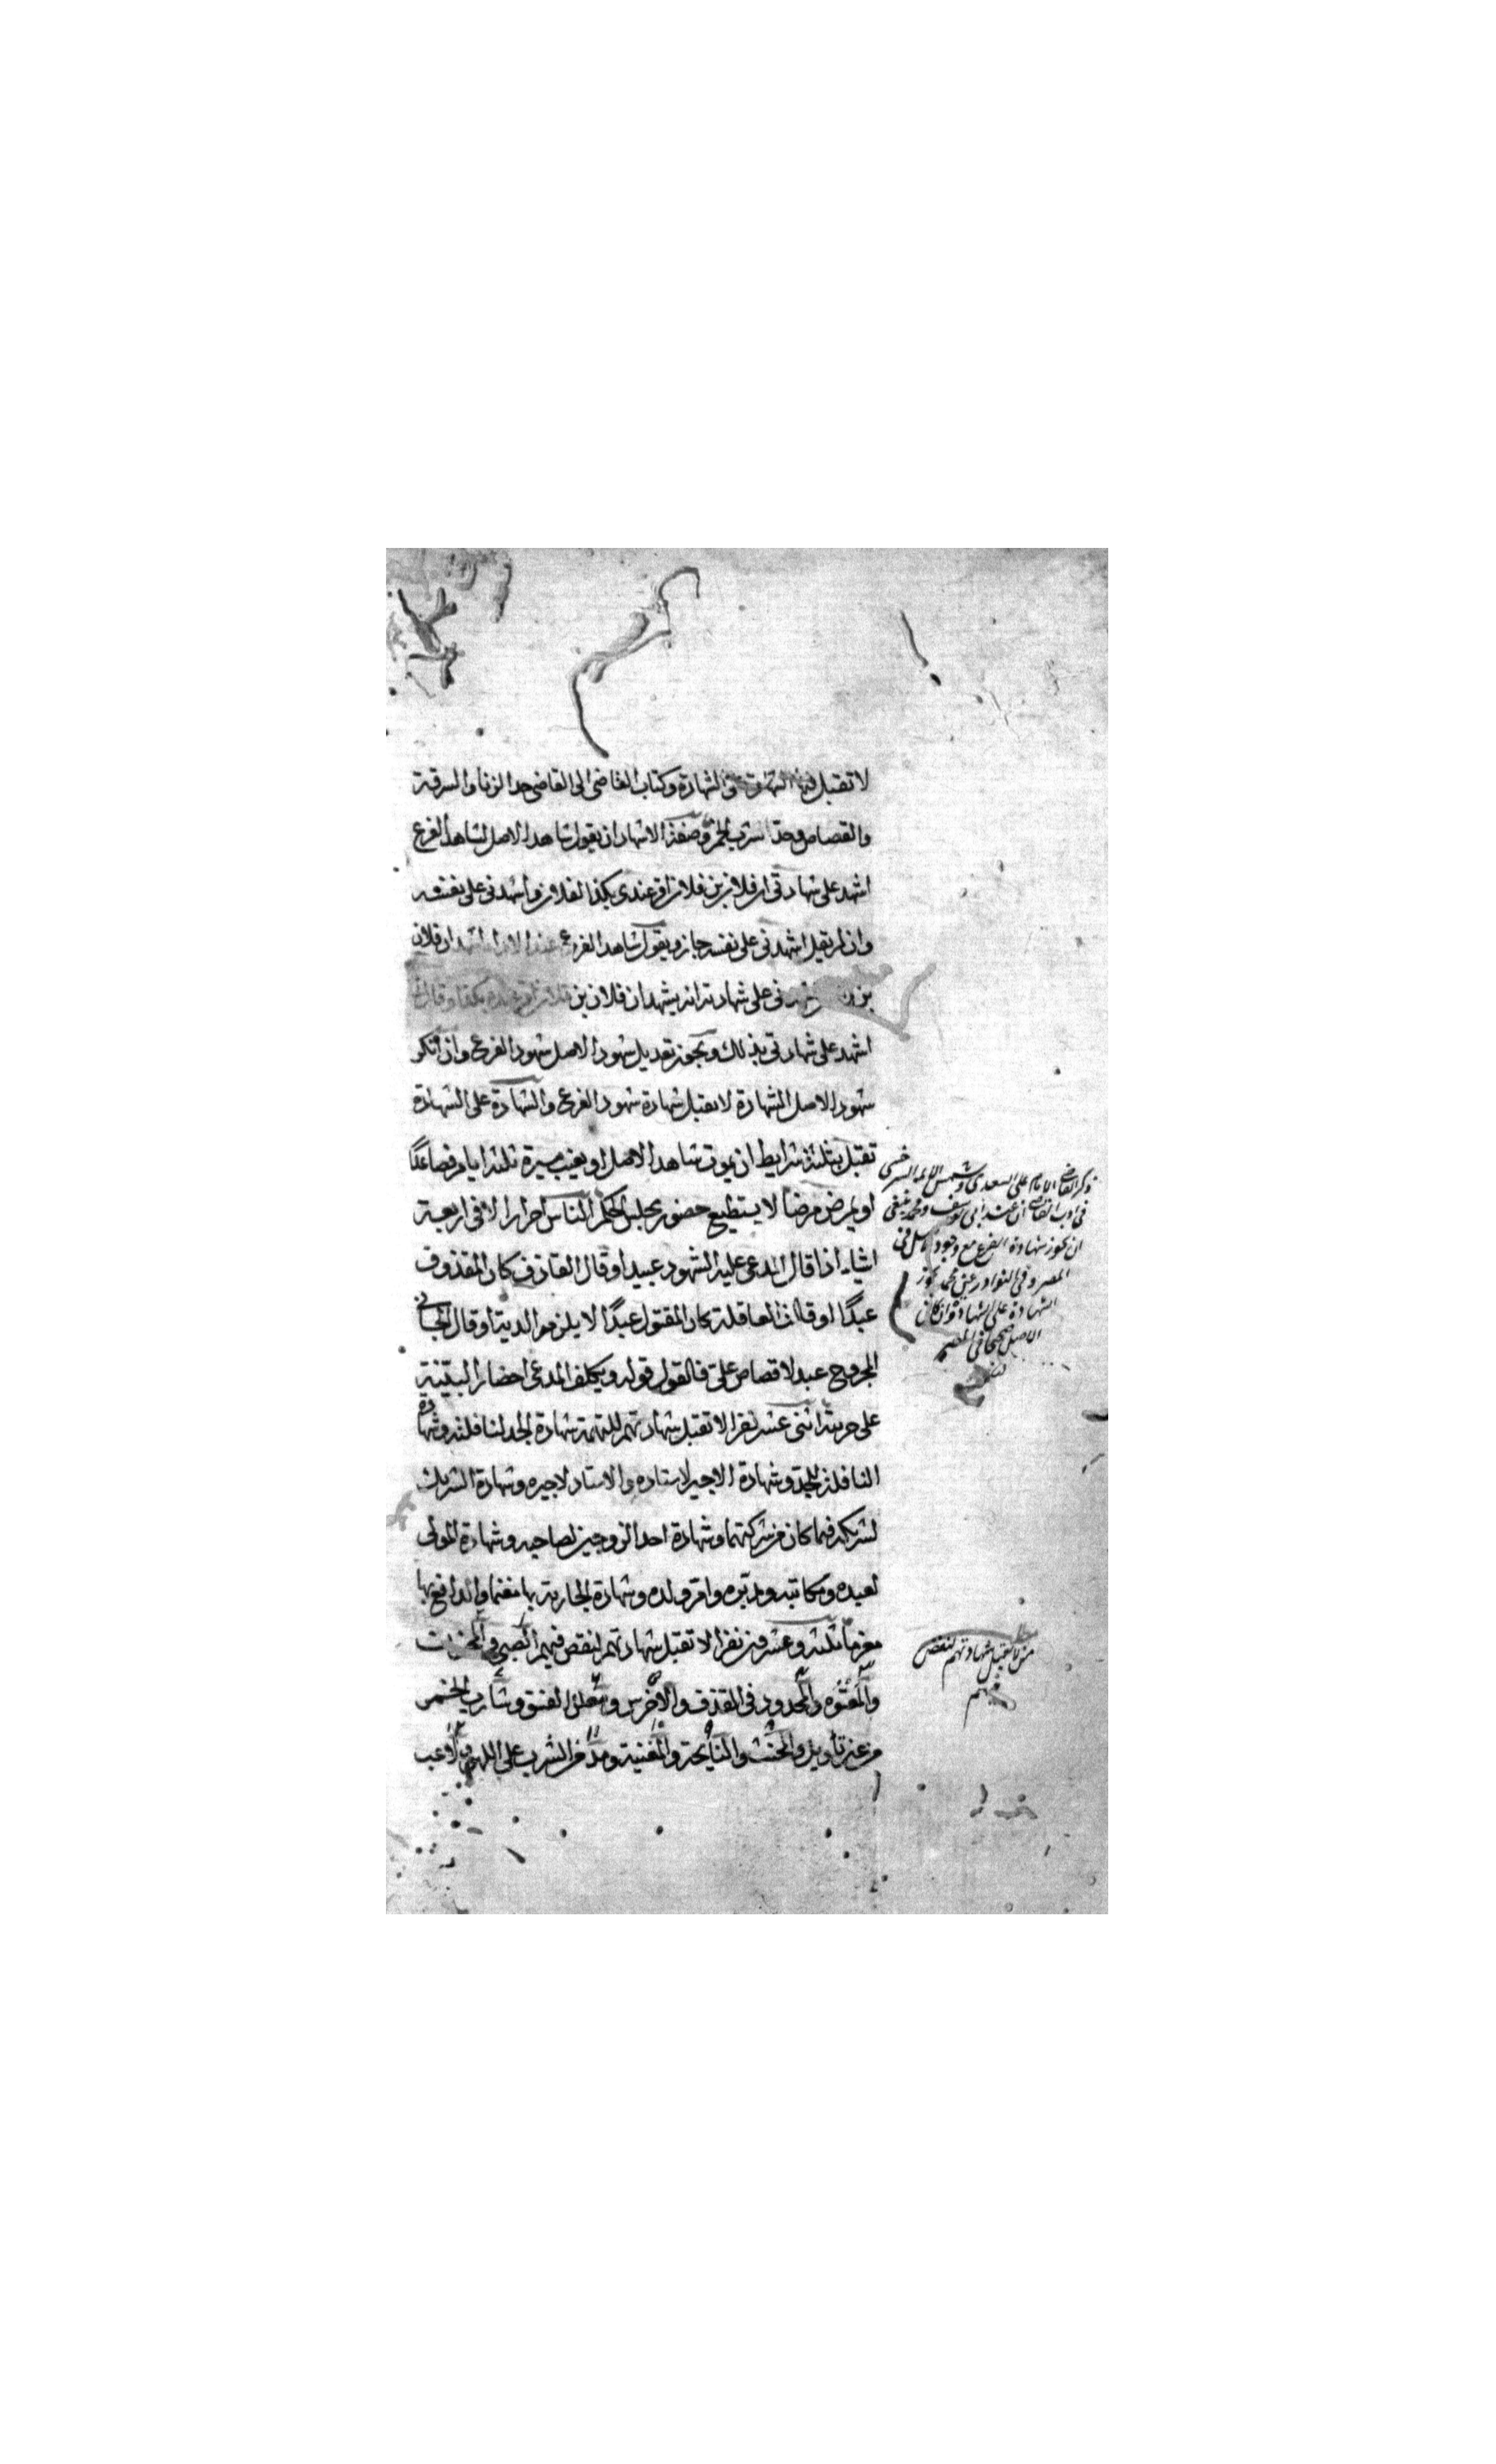 لا تقبل فيها الشهادة على الشهادة وكتاب القاضى الى القاضى حد الزنا والسرقة
والقصاص وحد شرب الخمر وصفة الاشهاد ان يقول شاهد الاصل لشاهد الفرع
اشهد على شهادتى ان فلان بن فلان اقر عندى بكذا لفلان واشهدنى على نفسه
وان لم يقل اشهدنى على نفسه جاز ويقول شاهد الفرع عند الاداء اشهد ان فلان
بن اشهدنى على شهادته انه يشهد ان فلان بن فلان اقر عنده بكذا وقال لى
اشهد على شهادتى بذلك ويجوز تعديل شهود الاصل شهود الفرع وان انكر
شهود الاصل الشهادة لا تقبل شهادة شهود الفرع والشهادة على الشهادة
تقبل بثلثة شرايط ان يموت شاهد الاصل او يغيب مسيرة ثلثة ايام فصاعدًا
او يمرض مرضا لا يستطيع حضور مجلس الحكم الناس احرار الا فى اربعة
اشياء اذا قال المدعى عليه الشهود عبيد او قال القاذف كان المقذوف
عبدًا او قالت العاقلة كان المقتول عبدًا لا يلزمه الدية او قال الجانى
المجروح عبد لا قصاص على فالقول قوله ويكلف المدعى احضار البينة
على حريته اثنى عشر نفرا لا تقبل شهادتهم للتهمة شهادة الجد لنافلته وشهادة
النافلة للجد وشهادة الاجير لاستاده والاستاد لاجيره وشهادة الشريك
لشريكه فيما كان من شركتهما وشهادة احد الزوجين لصاحبه وشهادة المولى
لعبده ومكاتبه ومدبره وام ولده وشهادة الجار بها مغنما والدافع بها
مغرما ثلثة وعشرون نفرا لا تقبل شهادتهم لنقص فيهم الصبى والمجنون
والمعتوه والمحدود فى القذف والاخرس ومعلن الفسق وشارب الخمر
من غير تأويل والمخنث والنايحة والمغنية ومدمن الشرب على اللهو ولاعب
ذكر القاضى الامام على السعدى وشمس الائمة السرخسى
فى ادب القاضى ان عند ابى يوسف ومحمد ينبغى
ان يجوز شهادة الفرع مع وجود الاصل فى
المصر وفى النوادر عن محمد يجوز
الشهادة على الشهادة وان كان
الاصل صحيحا فى المصر
مطلب
من لا تقبل شهادتهم لنقص
فيهم